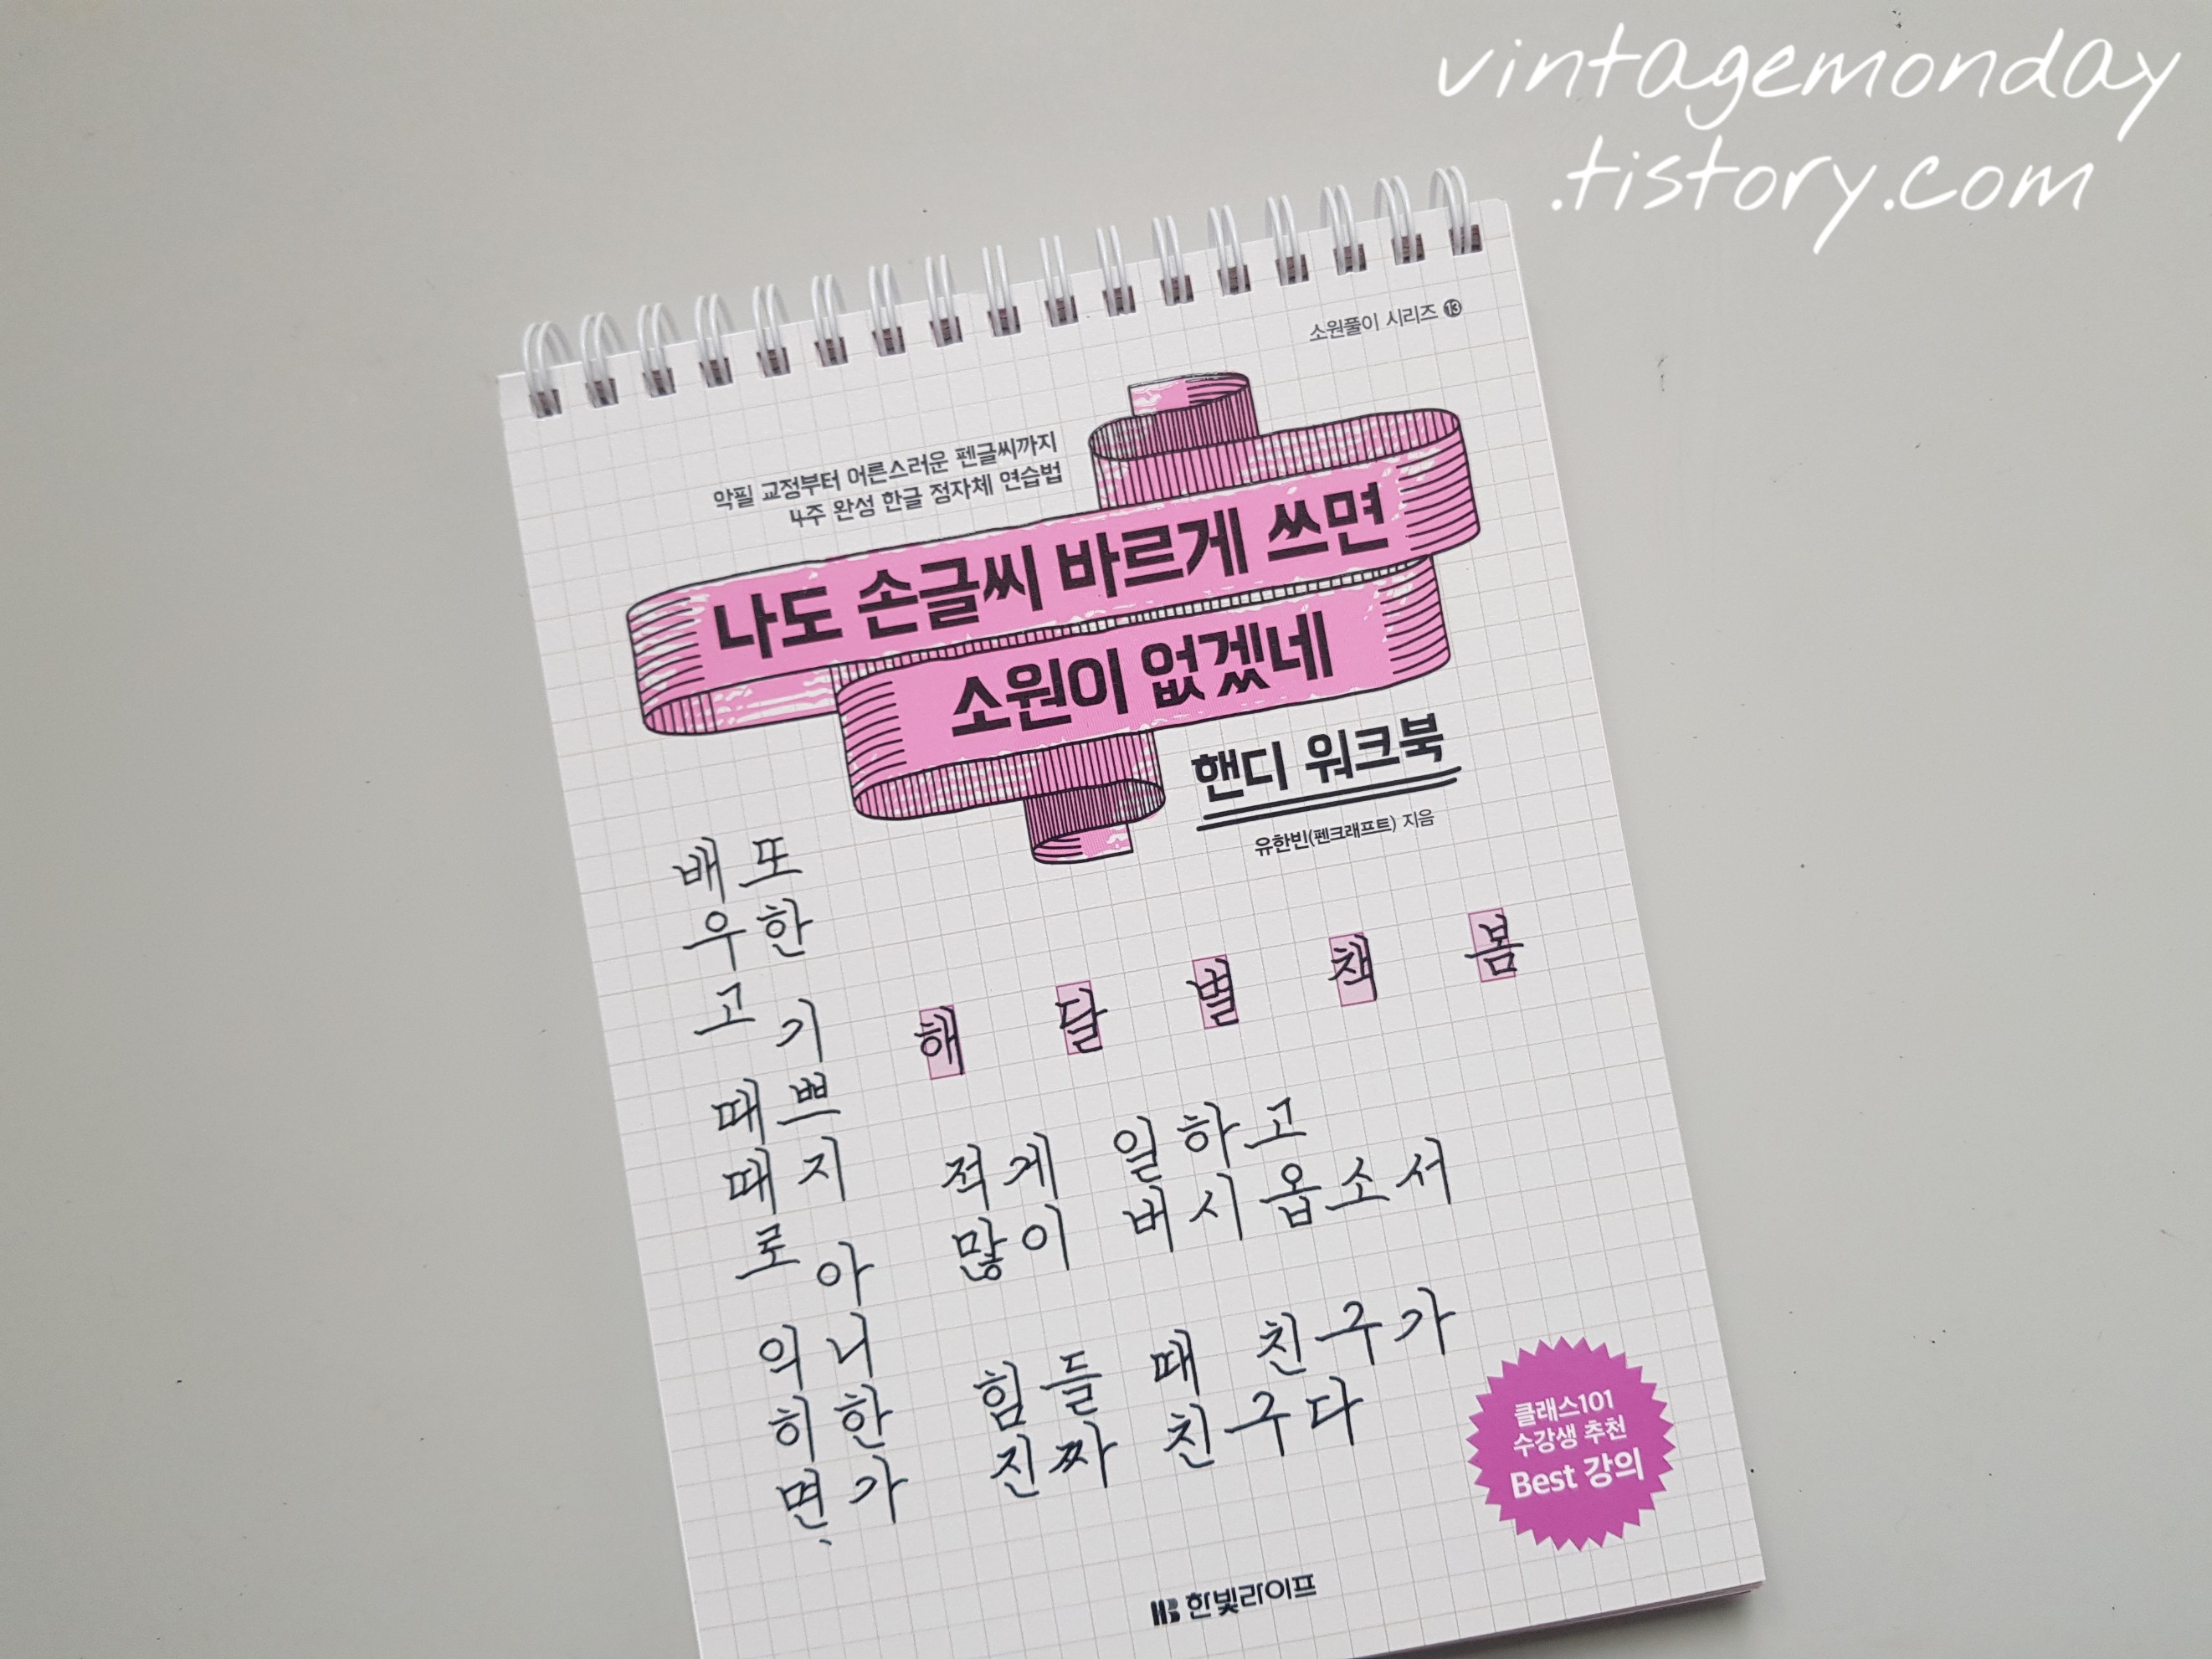 vintagemonday
.tistory.com
소원풀이 시리즈 ⓭
악필 교정부터 어른스러운 펜글씨까지
4주 완성 한글 정자체 연습법
나도 손글씨 바르게 쓰면
소원이 없겠네
핸디 워크북
유한빈(펜크래프트) 지음
배우고 때때로 익히면,
또한 기쁘지 아니한가
해 달 별 책 봄
적게 일하고
많이 버시옵소서
힘들 때 친구가
진짜 친구다
클래스101
수강생 추천
Best 강의
HB 한빛라이프